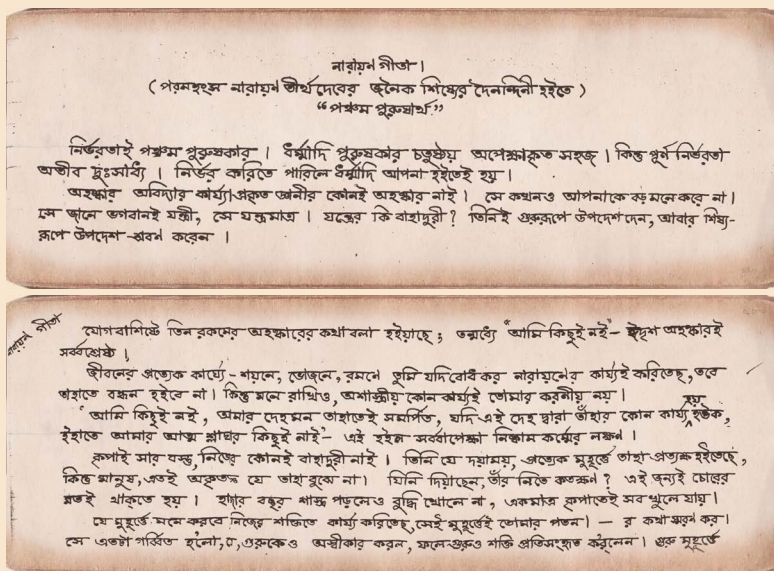 নারায়ণ গীতা।
( পরমহংস নারায়ণ তীর্থ দেবের জনৈক শিষ্যের দৈনন্দিনী হইতে )
“পঞ্চম পুরুষার্থ”
নির্ভরতাই পঞ্চম পুরুষকার । ধর্ম্মাদি পুরুষকার চতুষ্টয় অপেক্ষাকৃত সহজ । কিন্তু পূর্ণ নির্ভরতা
অতীব দুঃসাধ্য । নির্ভর করিতে পারিলে ধর্ম্মাদি আপনা হইতেই হয় ।
অহঙ্কার অবিদ্যার কার্য্য। প্রকৃত জ্ঞানীর কোনই অহঙ্কার নাই । সে কখনও আপনাকে বড় মনে করে না ।
সে জানে ভগবানই যন্ত্রী, সে যন্ত্রমাত্র । যন্ত্রের কি বাহাদুরী ? তিনিই গুরুরূপে উপদেশ দেন, আবার শিষ্য-
রূপে উপদেশ শ্রবণ করেন ।
নারায়ণ গীতা
যোগবাশিষ্টে তিন রকমের অহঙ্কারের কথা বলা হইয়াছে ; তন্মধ্যে "আমি কিছুই নই" – ঈদৃশ অহঙ্কারই
সর্ব্বশ্রেষ্ঠ ।
জীবনের প্রত্যেক কার্য্যে - শয়নে, ভোজনে, রমনে তুমি যদি বোধ কর নারায়ণের কার্য্যই করিতেছ, তবে
তাহাতে বন্ধন হইবে না । কিন্তু মনে রাখিও, অশাস্ত্রীয় কোন কার্য্যই তোমার করণীয় নয় ।
"আমি কিছুই নই, আমার দেহ মন তাহাতেই সমর্পিত, যদি এই দেহ দ্বারা তাঁহার কোন কার্য্য হয় হউক,
ইহাতে আমার আত্ম শ্লাঘার কিছুই নাই" – এই হইল সর্ব্বাপেক্ষা নিষ্কাম কর্ম্মের লক্ষণ ।
কৃপাই সার বস্তু, নিজের কোনই বাহাদুরী নাই । তিনি যে দয়াময়, প্রত্যেক মুহূর্ত্তে তাহা প্রত্যক্ষ হইতেছে,
কিন্তু মানুষ, এতই অকৃতজ্ঞ যে তাহা বুঝে না । যিনি দিয়াছেন, তাঁর নিতে কতক্ষণ ? এই জন্যই চোরের
মতই থাকতে হয় । হাজার বছর শাস্ত্র পড়লেও বুদ্ধি খোলে না, একমাত্র কৃপাতেই সব খুলে যায় ।
যে মুহূর্ত্তে মনে করবে নিজের শক্তিতে কার্য্য করিতেছ, সেই মুহূর্ত্তেই তোমার পতন । — র কথা স্মরণ কর ।
সে এতটা গর্ব্বিত হ'লো, যে, গুরুকেও অস্বীকার করল, ফলে গুরুও শক্তি প্রতিসংহৃত করলেন । গুরু মুহূর্ত্তে